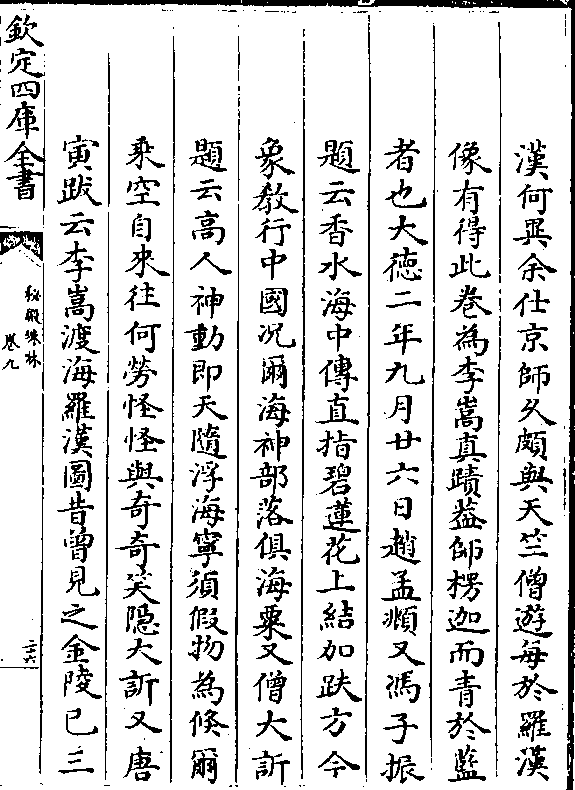 漢何異余仕京師久頗與天竺僧遊每於羅漢
像有得此卷為李嵩真蹟葢師楞迦而青於藍
者也大徳二年九月廿六日趙孟頫又馮子振
題云香水海中傳直指碧蓮花上結加趺方今
象教行中國况爾海神部落俱海粟又僧大訢
題云高人神動即天隨浮海寧須假物為倐爾
乗空自來往何勞怪怪與奇奇笑隠大訢又唐
寅跋云李嵩渡海羅漢圖昔曽見之金陵已三
欽定四庫全書
秘殿珠林
卷九
二六